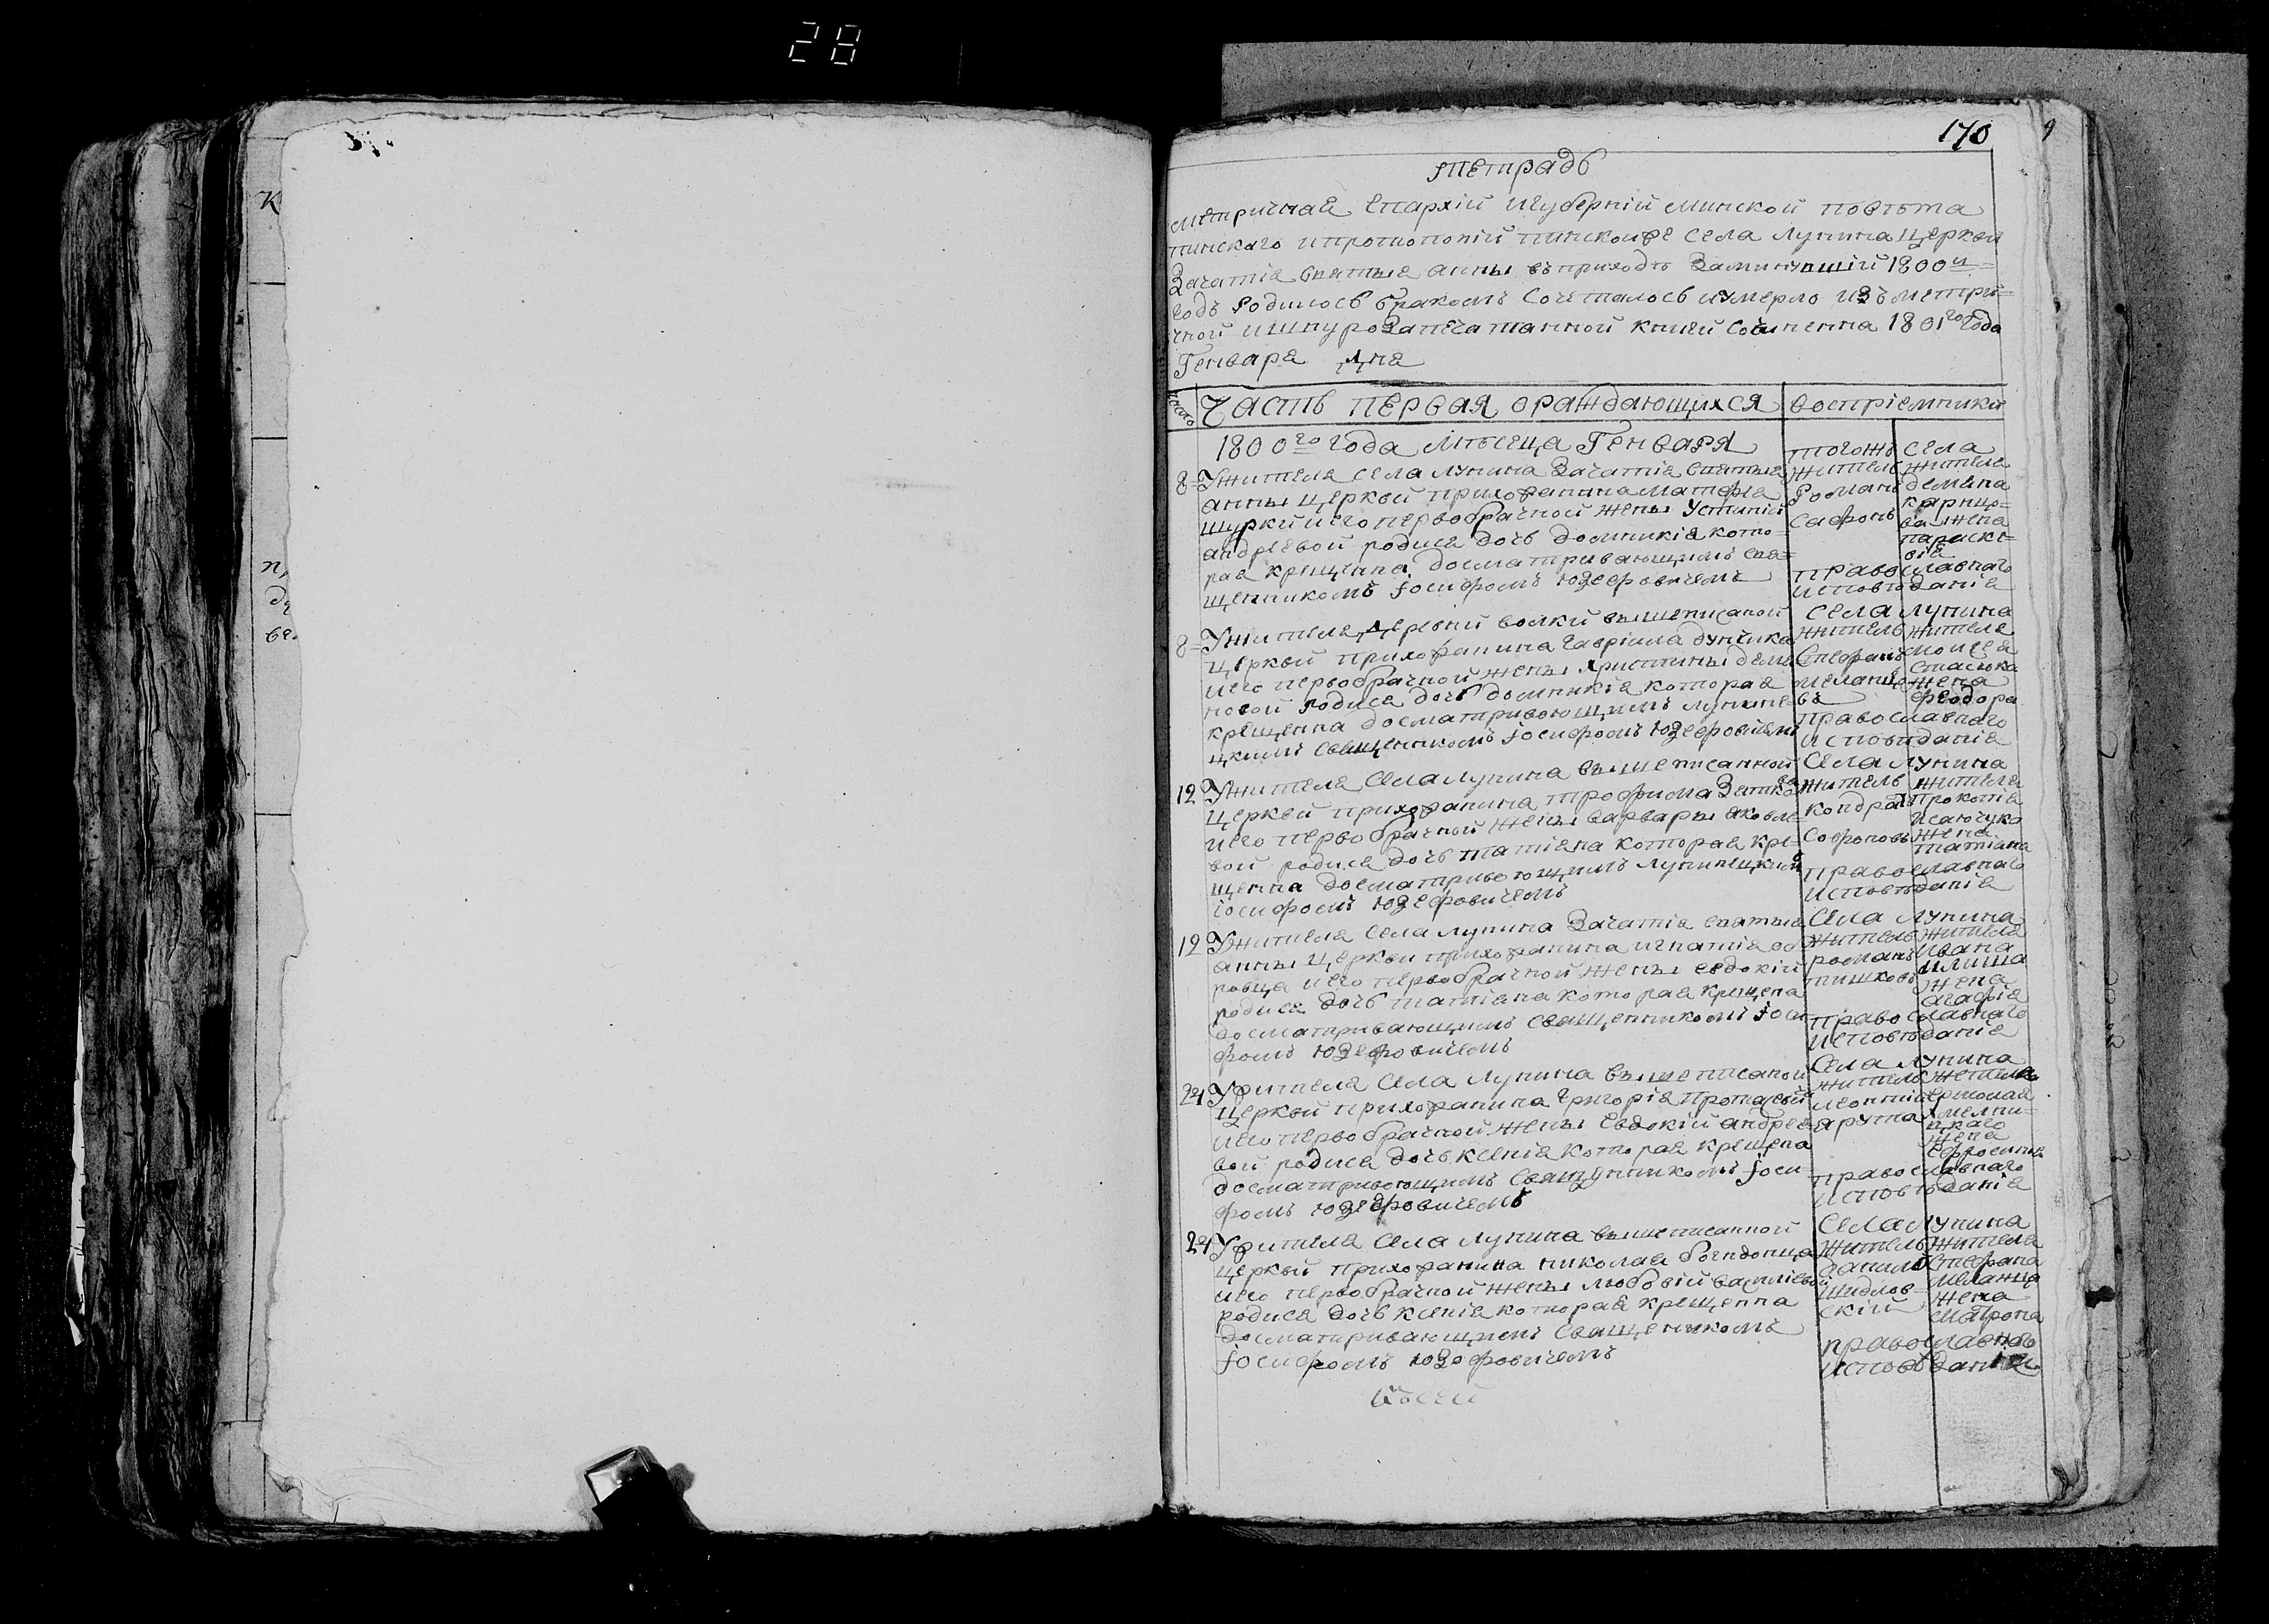 28
170
9
тетрадь
метричная Епархій игуберніи минской повѣта
пинскаго ипротопопіи пинскойже села лунина церкви
Зачатія святыя анны въприходѣ Заминувшій 1800й=
годъ родилось бракомъ сочеталось иумерло изъ метри=
чной ишнурозапечатанной книги сочиненна 1801го года
Генваря дня
число
Часть первая ораждающихся
воспріемники
1800го года мѣсяца Генваря
8= Ужителя села лунина Зачатія святыя
анны церкви прихожанина матфея
шурки иего первобрачной жены Устиніи
андреевой родися дочь домникія кото=
рая крещенна досматривающимъ свя=
щенникомъ іосифомъ юзефовичемъ
тогожъ села
житель
романъ
сафонъ
жителя
демяна
жена
параскѣ=
віа
православнаго
исповѣданія
8= Ужителя деревни волки вышеписаной
церкви прихожанина гавріила дунчика
иего первобрачной жены христины деме
новой родися дочь домникія которая
крещенна досматривающимъ лунине
цкимъ священникомъ іосифомъ юзефовичемъ
села лунина
житель
Стефанъ
жителя
моисея
стасюка
жена
феодора
православнаго
исповѣданія
12 Ужителя села лунина вышеписанной
церкви прихожанина трофима
иего первобрачной жены варвары яковле=
вой родися дочь татіана которая кре=
щенна досматривающимъ лунинецкимъ
іосифомъ юзефовичемъ
села лунина
житель
кондрат
Софоновъ
жителя
Прокопія
жена
татіана
православнаго
исповѣданія
12 Ужителя села лунина Зачатія святыя
анны церкви прихожанина игнатія об
ровца иего первобрачной жены евдокіи
родися дочь татіана которая крещена
досматривающимъ священникомъ іоси
фомъ юзефовичемъ
села лунина
житель
романъ
тишковъ
жителя
ивана
илища
жена
агафія
православнаго
исповѣданія
24 Ужителя села лунина вышеписаной
церкви прихожанина григорія
иего первобрачной жены Евдокіи андрее
вой родися дочь ксенія которая крещена
досматривающимъ священникомъ іоси=
фомъ юзефовичемъ
села лунина
житель
леонтій
ярута
жителя
ермолая
хмелни=
цкаго
жена
православнаго
исповѣданія
24 Ужителя села лунина вышеписанной
церкви прихожанина николая
иего первобрачной жены любовіи василіевой
родися дочь ксенія которая крещенна
досматривающимъ священикомъ
іосифомъ юзефовичемъ
села лунина
житель
данило
шидлов=
скій
жителя
Стефана
жена
матрона
православнаго
исповѣданія